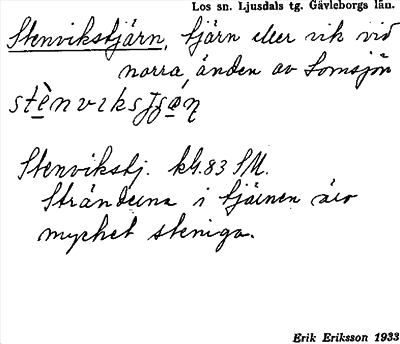 Los sn. Ljusdals tg. Gävleborgs län.
Stenvikstjärn, tjärn eller vik vid
norra änden av Lomsjön
Stenvikstj. kbl.83 SM.
Stränderna i tjärnen äro
mycket steniga.
Erik Eriksson 1933